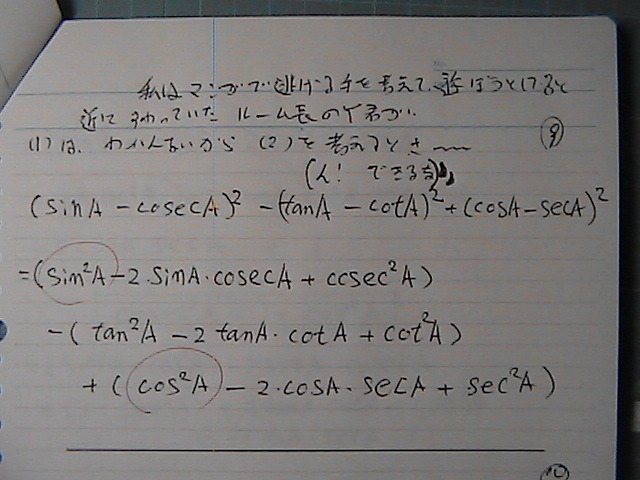 私はマンガで逃げる手を考えて、遊ぼうとすると
近にすわっていた ルーム長のY君が、
(1)は、わかんないから (2)を考えてとき〜
⑨
(ん! できるぞ)
(sinA - cosecA)² - (tanA - cotA)² + (cosA - secA)²
= (sin²A - 2・sinA・cosecA + cosec²A)
- (tan²A - 2 tanA・cotA + cot²A)
+ (cos²A - 2・cosA・secA + sec²A)